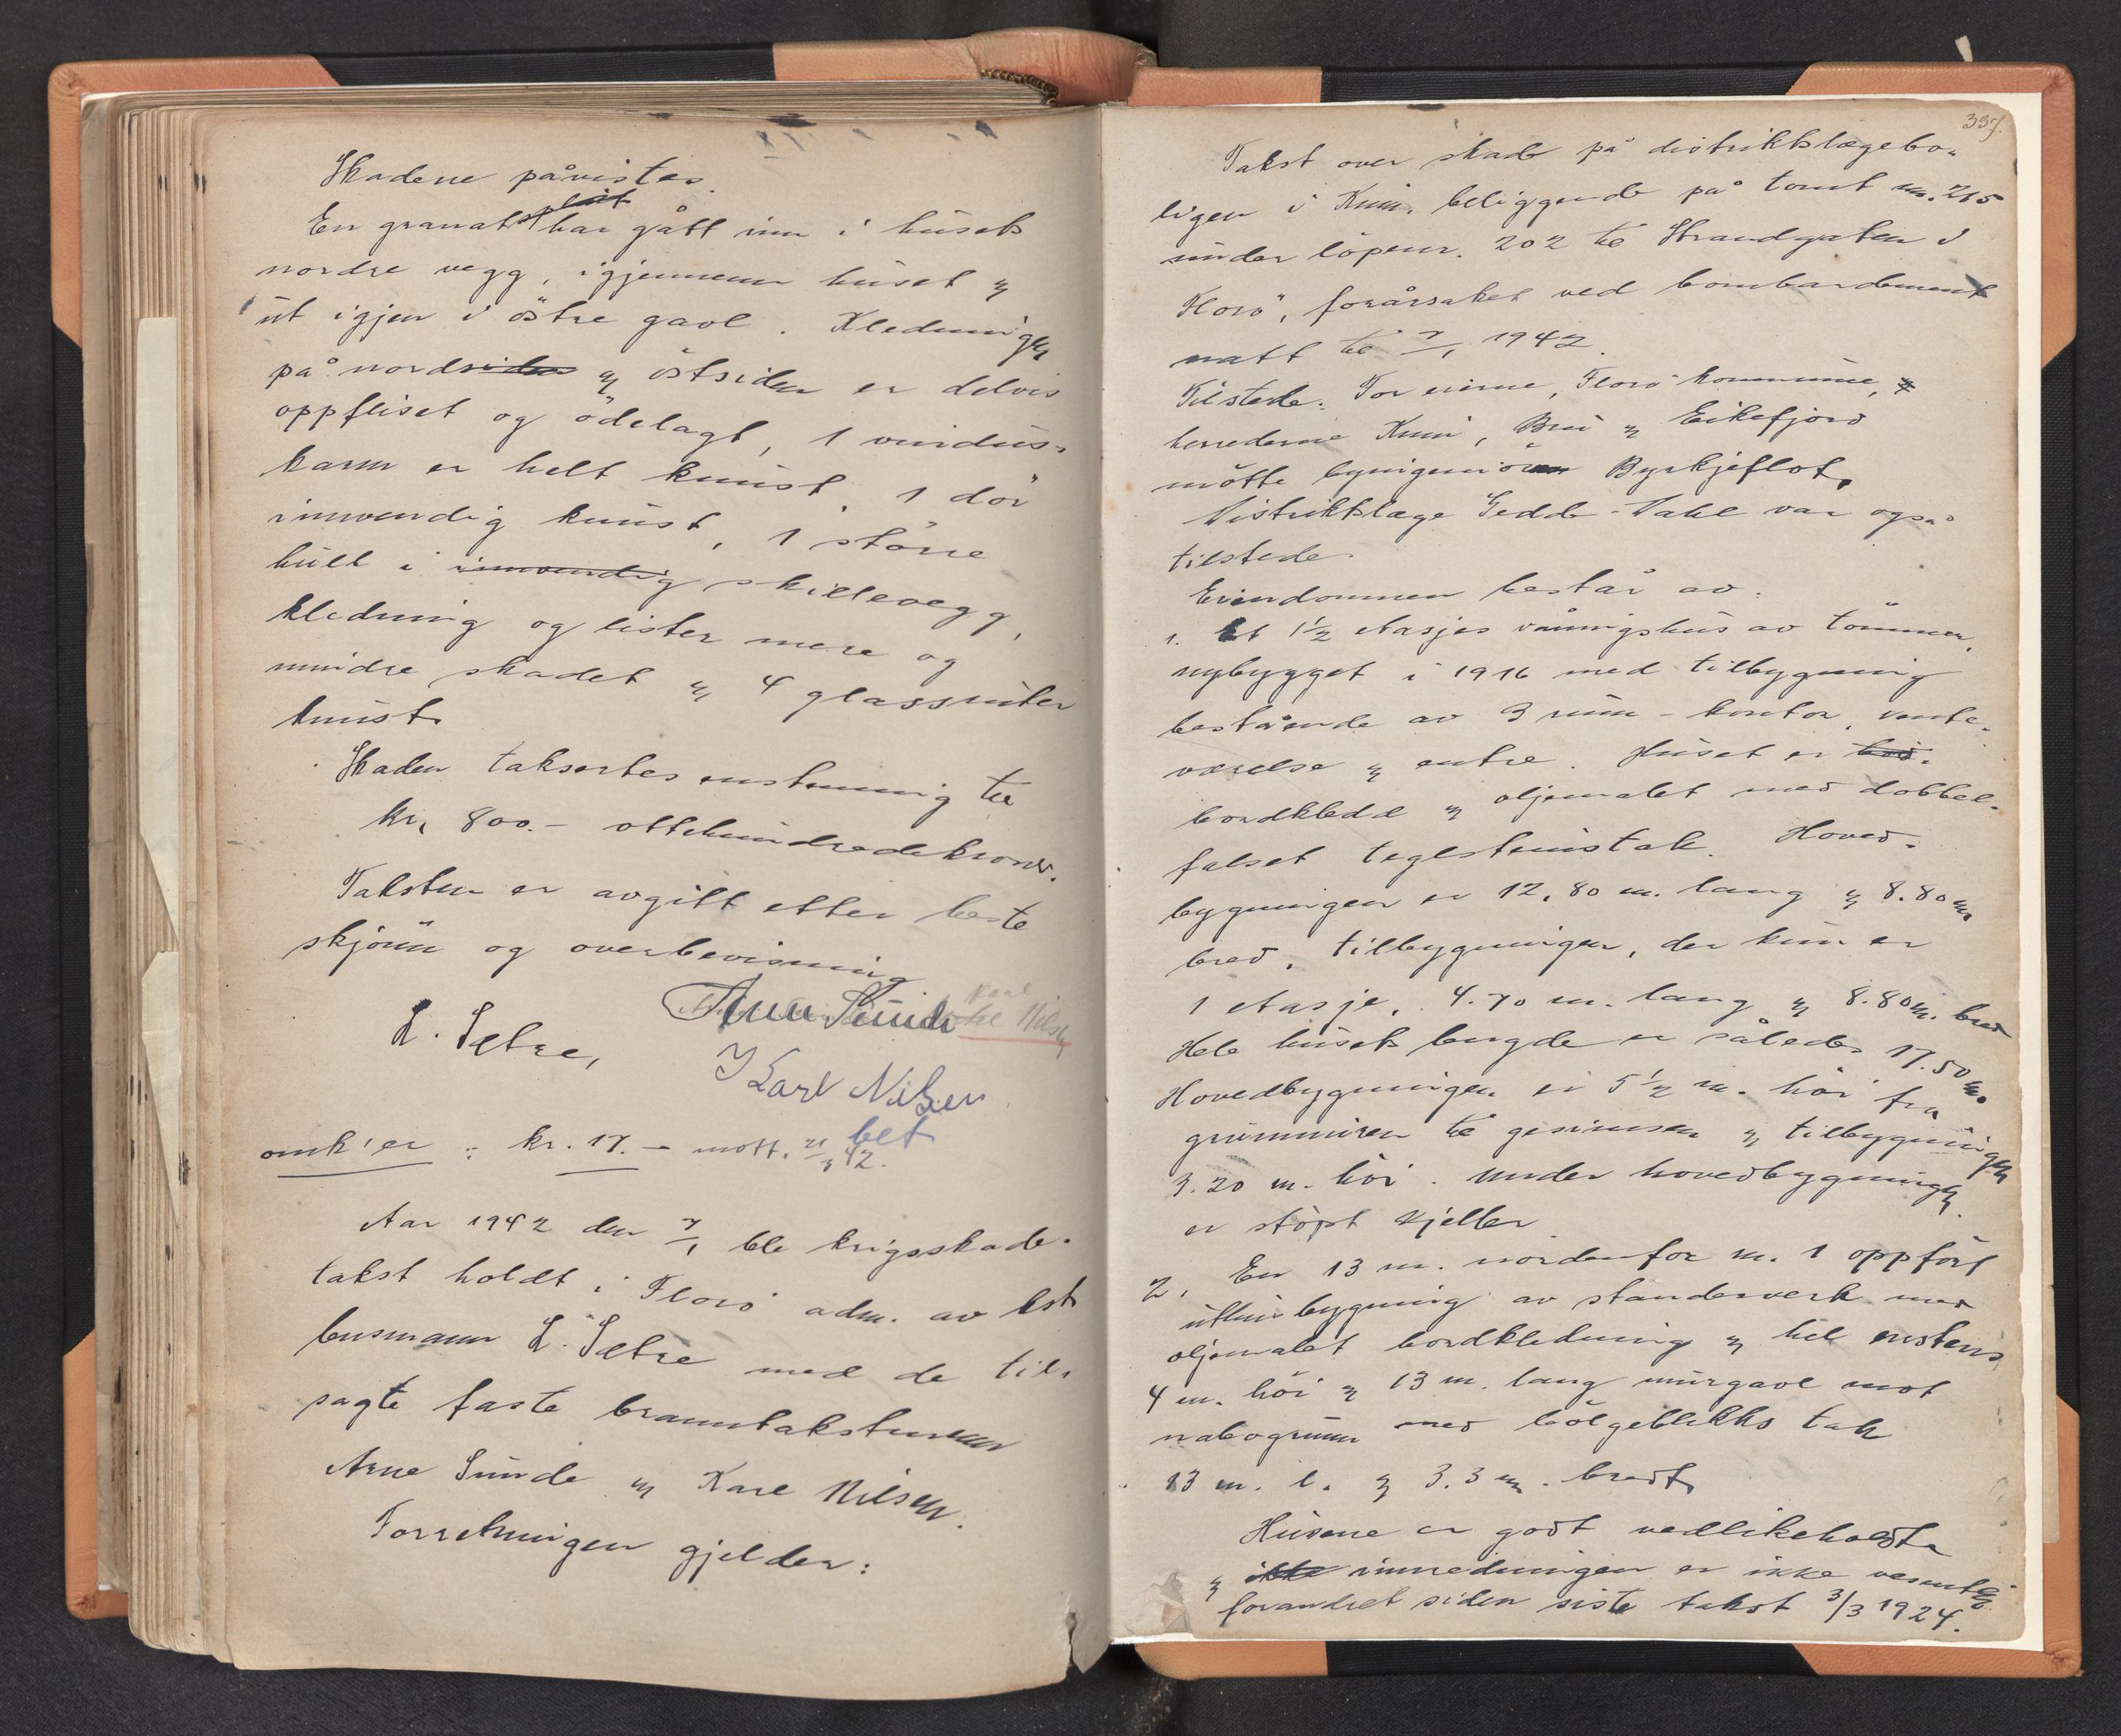 Skadene påvistes.
En granatsplint har gått inn i husets
nordre vegg, igjennem huset og
ut igjen i östre gavl. Kledningen
på nordsiden og östsiden er delvis
oppfliset og ödelagt, 1 vindus-
karm er helt knust, 1 dör
innvendig knust, 1 större
hull i innvendig skillevegg,
kledning og lister mere og
mindre skadet og 4 glassruter
knust.
Skaden taksertes enstemmig til
kr. 800.- ottehundredekroner.
Taksten er avgitt efter beste
skjönn og overbevisning
L. Setre, Arne Sunde Karl Nilsen
Karl Nilsen
omk'er : kr. 17.- mott. 21/3 42. bet
Aar 1942 den 7/1 ble krigsskade-
takst holdt i Florö adm. av lst
lensmann L. Setre med de til-
sagte faste branntakstmenn
Arne Sunde og Karl Nilsen.
Forretningen gjelder:
337.
Takst over skade på distriktslægebo-
ligen i Kinn, beliggende på tomt nr. 215
under löpenr. 202 til Strandgaten i
Florö, forårsaket ved bombardement
natt til 7/1 1942.
Tilstede: For eierne, Florö kommune, og
herrederne Kinn, Bru og Eikefjord
mötte byingeniören Byrkjeflot.
Distriktslæge Gedde-Dahl var også
tilstede.
Eiendommen består av:
1. Et 1½ etasjes våningshus av tömmer,
nybygget i 1916 med tilbygning
bestående av 3 rum - kontor, vente-
værelse og entre. Huset er bord-
bordkledd og oljemalet med dobbel-
falset teglstenstak. Hoved-
bygningen er 12,80 m. lang og 8.80 m.
bred, tilbygningen, der kun er
1 etasje, 4.70 m. lang og 8.80 m. bred
Hele husets lengde er således 17.50 m.
Hovedbygningen er 5½ m. höi fra
grunnmuren til gesimsen og tilbygningen
3.20 m. höi. Under hovedbygningen
er stöpt kjeller
2. En 13 m. nordenfor nr. 1 oppfört
uthusbygning av standerverk med
oljemalet bordkledning og hel enstens
4 m. höi og 13 m. lang murgavl mot
nabogrunn med bölgeblikks tak
13 m. l. og 3.3 m. bredt.
Husene er godt vedlikeholdte
og ikke innredningen er ikke vesentlig
forandret siden siste takst 3/3 1924.